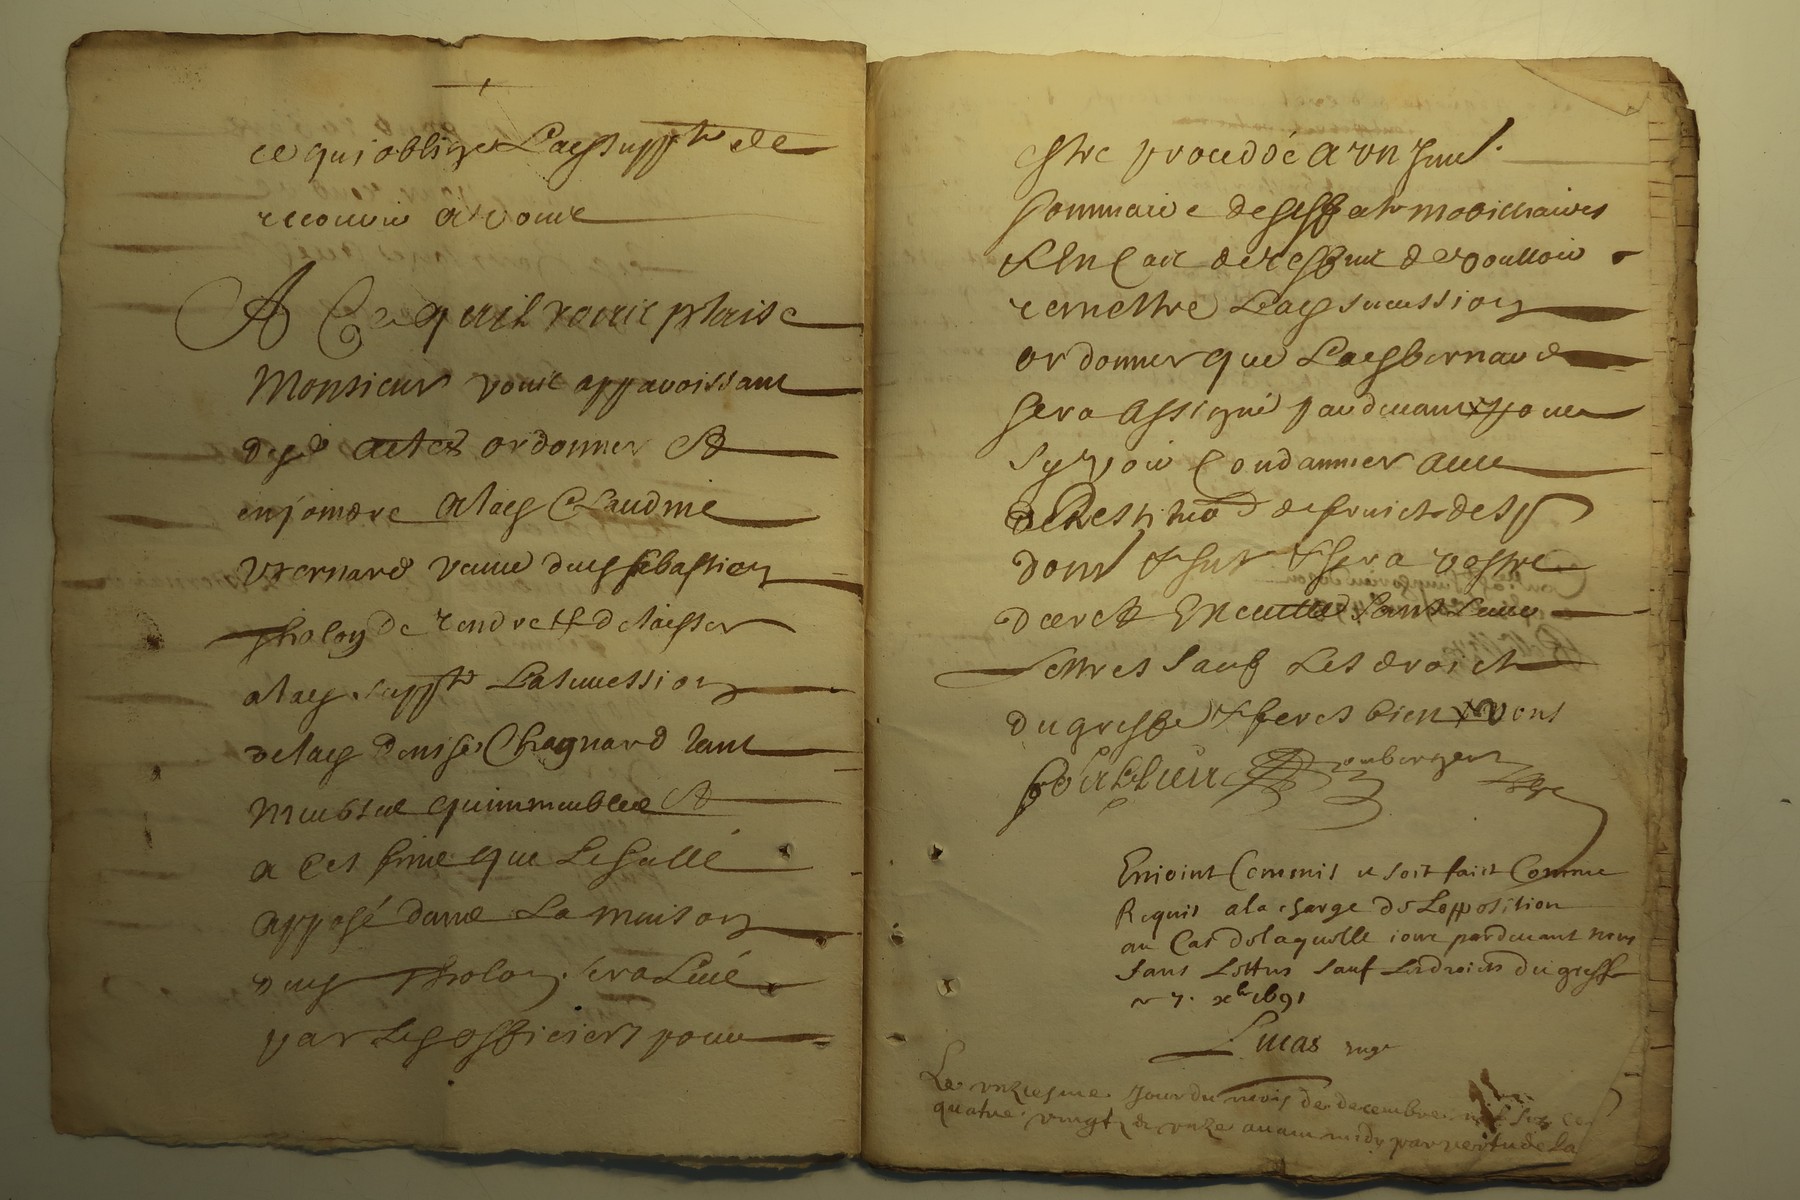 ce qui oblige Lad suppte de
recourir a vous
A Ce quil vous plaise
Monsieur vous apparoissant
desd actes ordonner Et
enjoindre alad Claudine
Bernard veuve dud sebastien
tholon de rendre et delaisser
alad suppte La succession
delad denise Chagnard tant
meuble qu immeuble Et
a Ces fins que Le sellé
apposé dans La maison
dud tholon sera Levé
par Les officiers pour
estre proceddé a un Inv
sommaire des effets mobiliaires
& En Cas de reffus de vouloir
remettre Lad succession
ordonner que Lad bernard
sera assigné pardevant pour
sy voir Condamner avec
de Restituon de fruicts desp
dom & sur & sera vostre
decret Executté sans
lettres sauf Les droicts
du greffe & feres bien

Enioint Commis et soit faict Comme
Requis a la charge de Lopposition
au Cas de laquelle iour pardevant nous
sans Lettres sauf Les droicts du greffe
7. xbre 1691
Lucas juge
Le unziesme Jour du mois de decembre mil six cen
quatre vingt & unze avant midy par vertu de La